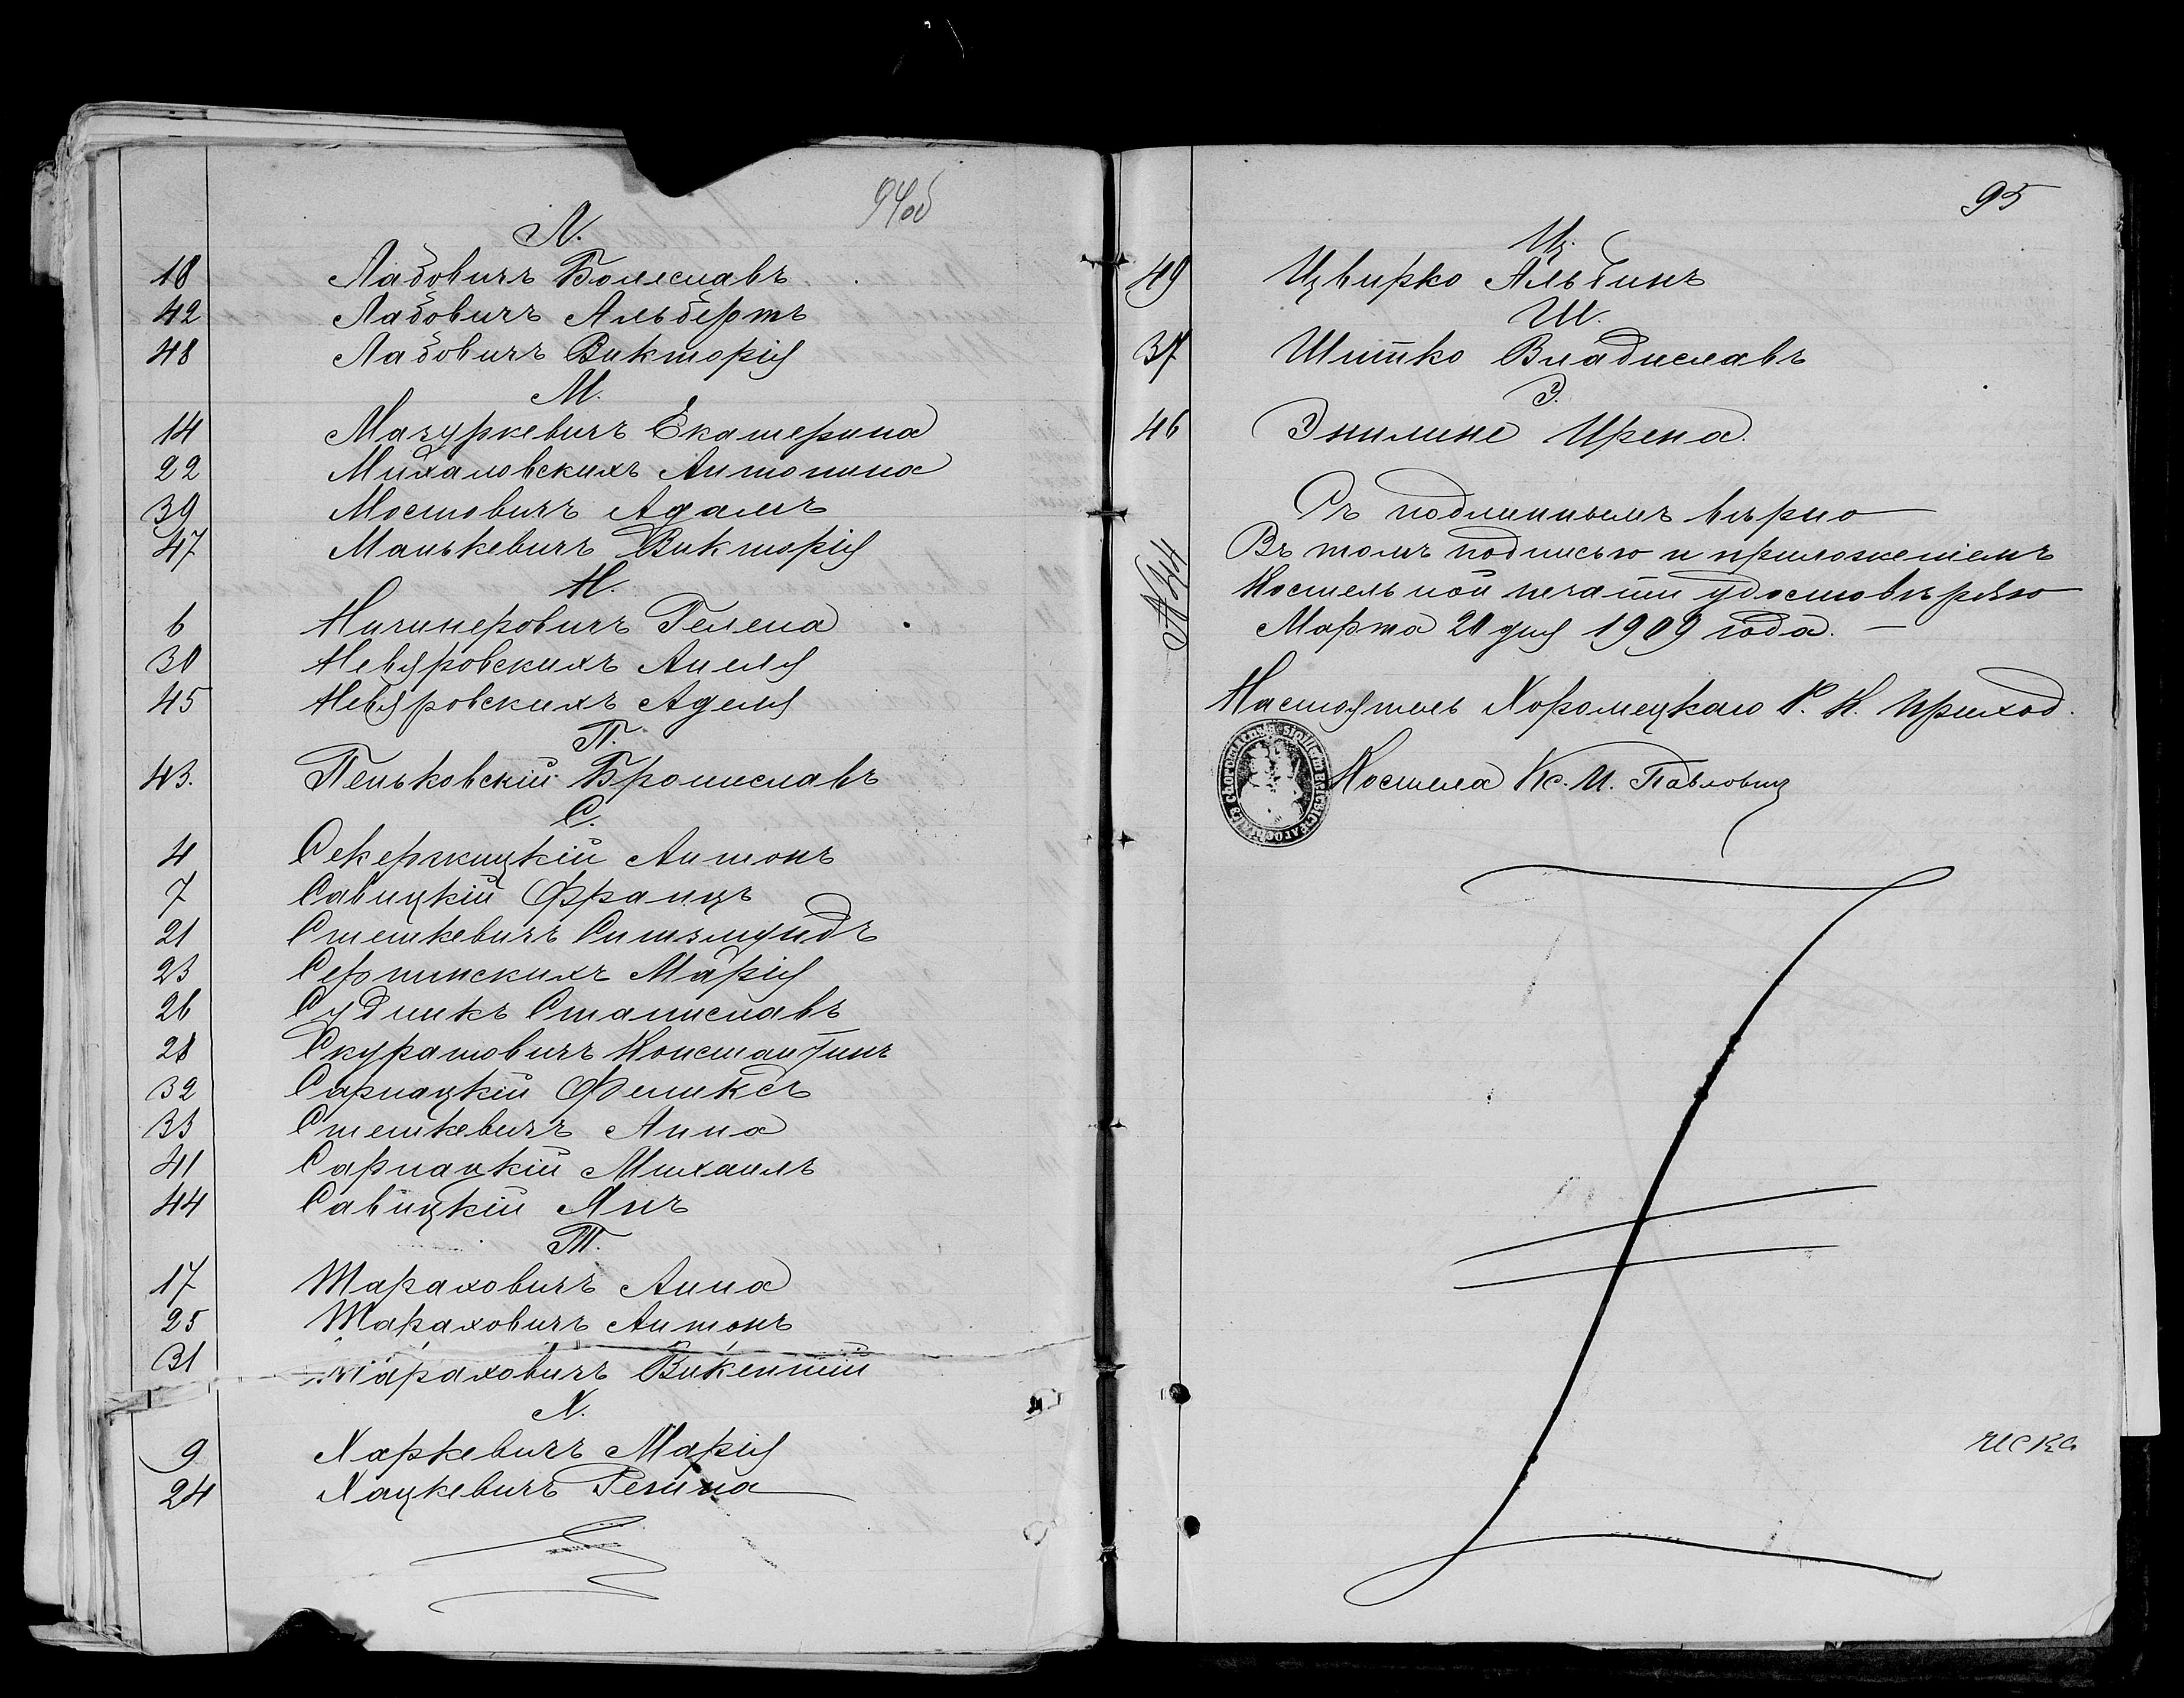 94об
Л.
18 Лабовичъ Болеславъ
42 Лабовичъ Альбертъ
48 Лабовичъ Викторія
М.
14 Мазуркевичъ Екатерина
22 Михаловскихъ Антонина
39 Мостовичъ Адамъ
47 Манькевичъ Викторія
Н.
6 Гелена
30 Невяровскихъ Анеля
45 Невяровскихъ Аделя
П.
43. Пеньковскій Брониславъ
С.
4 Секержицкій Антонъ
7 Савицкій Францъ
21 Стешкевичъ
23 Марія
26 Судникъ Станиславъ
28 Скуратовичъ Константинъ
32 Сарнацкій Феликсъ
33 Стешкевичъ Анна
41 Сарнацкій Михаилъ
44 Савицкій Янъ
Т.
17 Тараховичъ Анна
25 Тараховичъ Антонъ
31 Тараховичъ Викентій
Х.
9 Харкевичъ Марія
24 Хацкевичъ Регина
95
Ц.
49 Цвирко Альбинъ
Ш.
37 Шитко Владиславъ
Э.
46 Ирена.
Съ подлиннымъ вѣрно
Въ томъ подписью и приложеніемъ
Костельной печати удостовѣряю
Марта 20 дня 1909 года. —
№ 44
Настоятель Хоромецкаго Р. К. Приход.
Костела Кс. И. Павлович